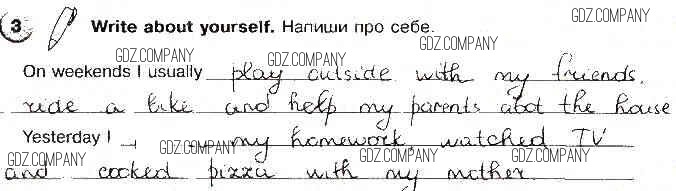 3 Write about yourself. Напиши про себе.
GDZ.COMPANY
GDZ.COMPANY GDZ.COMPANY GDZ.COMPANY
On weekends I usually play outside with my friends.
ride a bike and help my parents abot the house
GDZ.COMPANY GDZ.COMPANY
Yesterday I my homework, watched TV
GDZ.COMPANY GDZ.COMPANY GDZ.COMPANY
and cooked pizza with my mother.